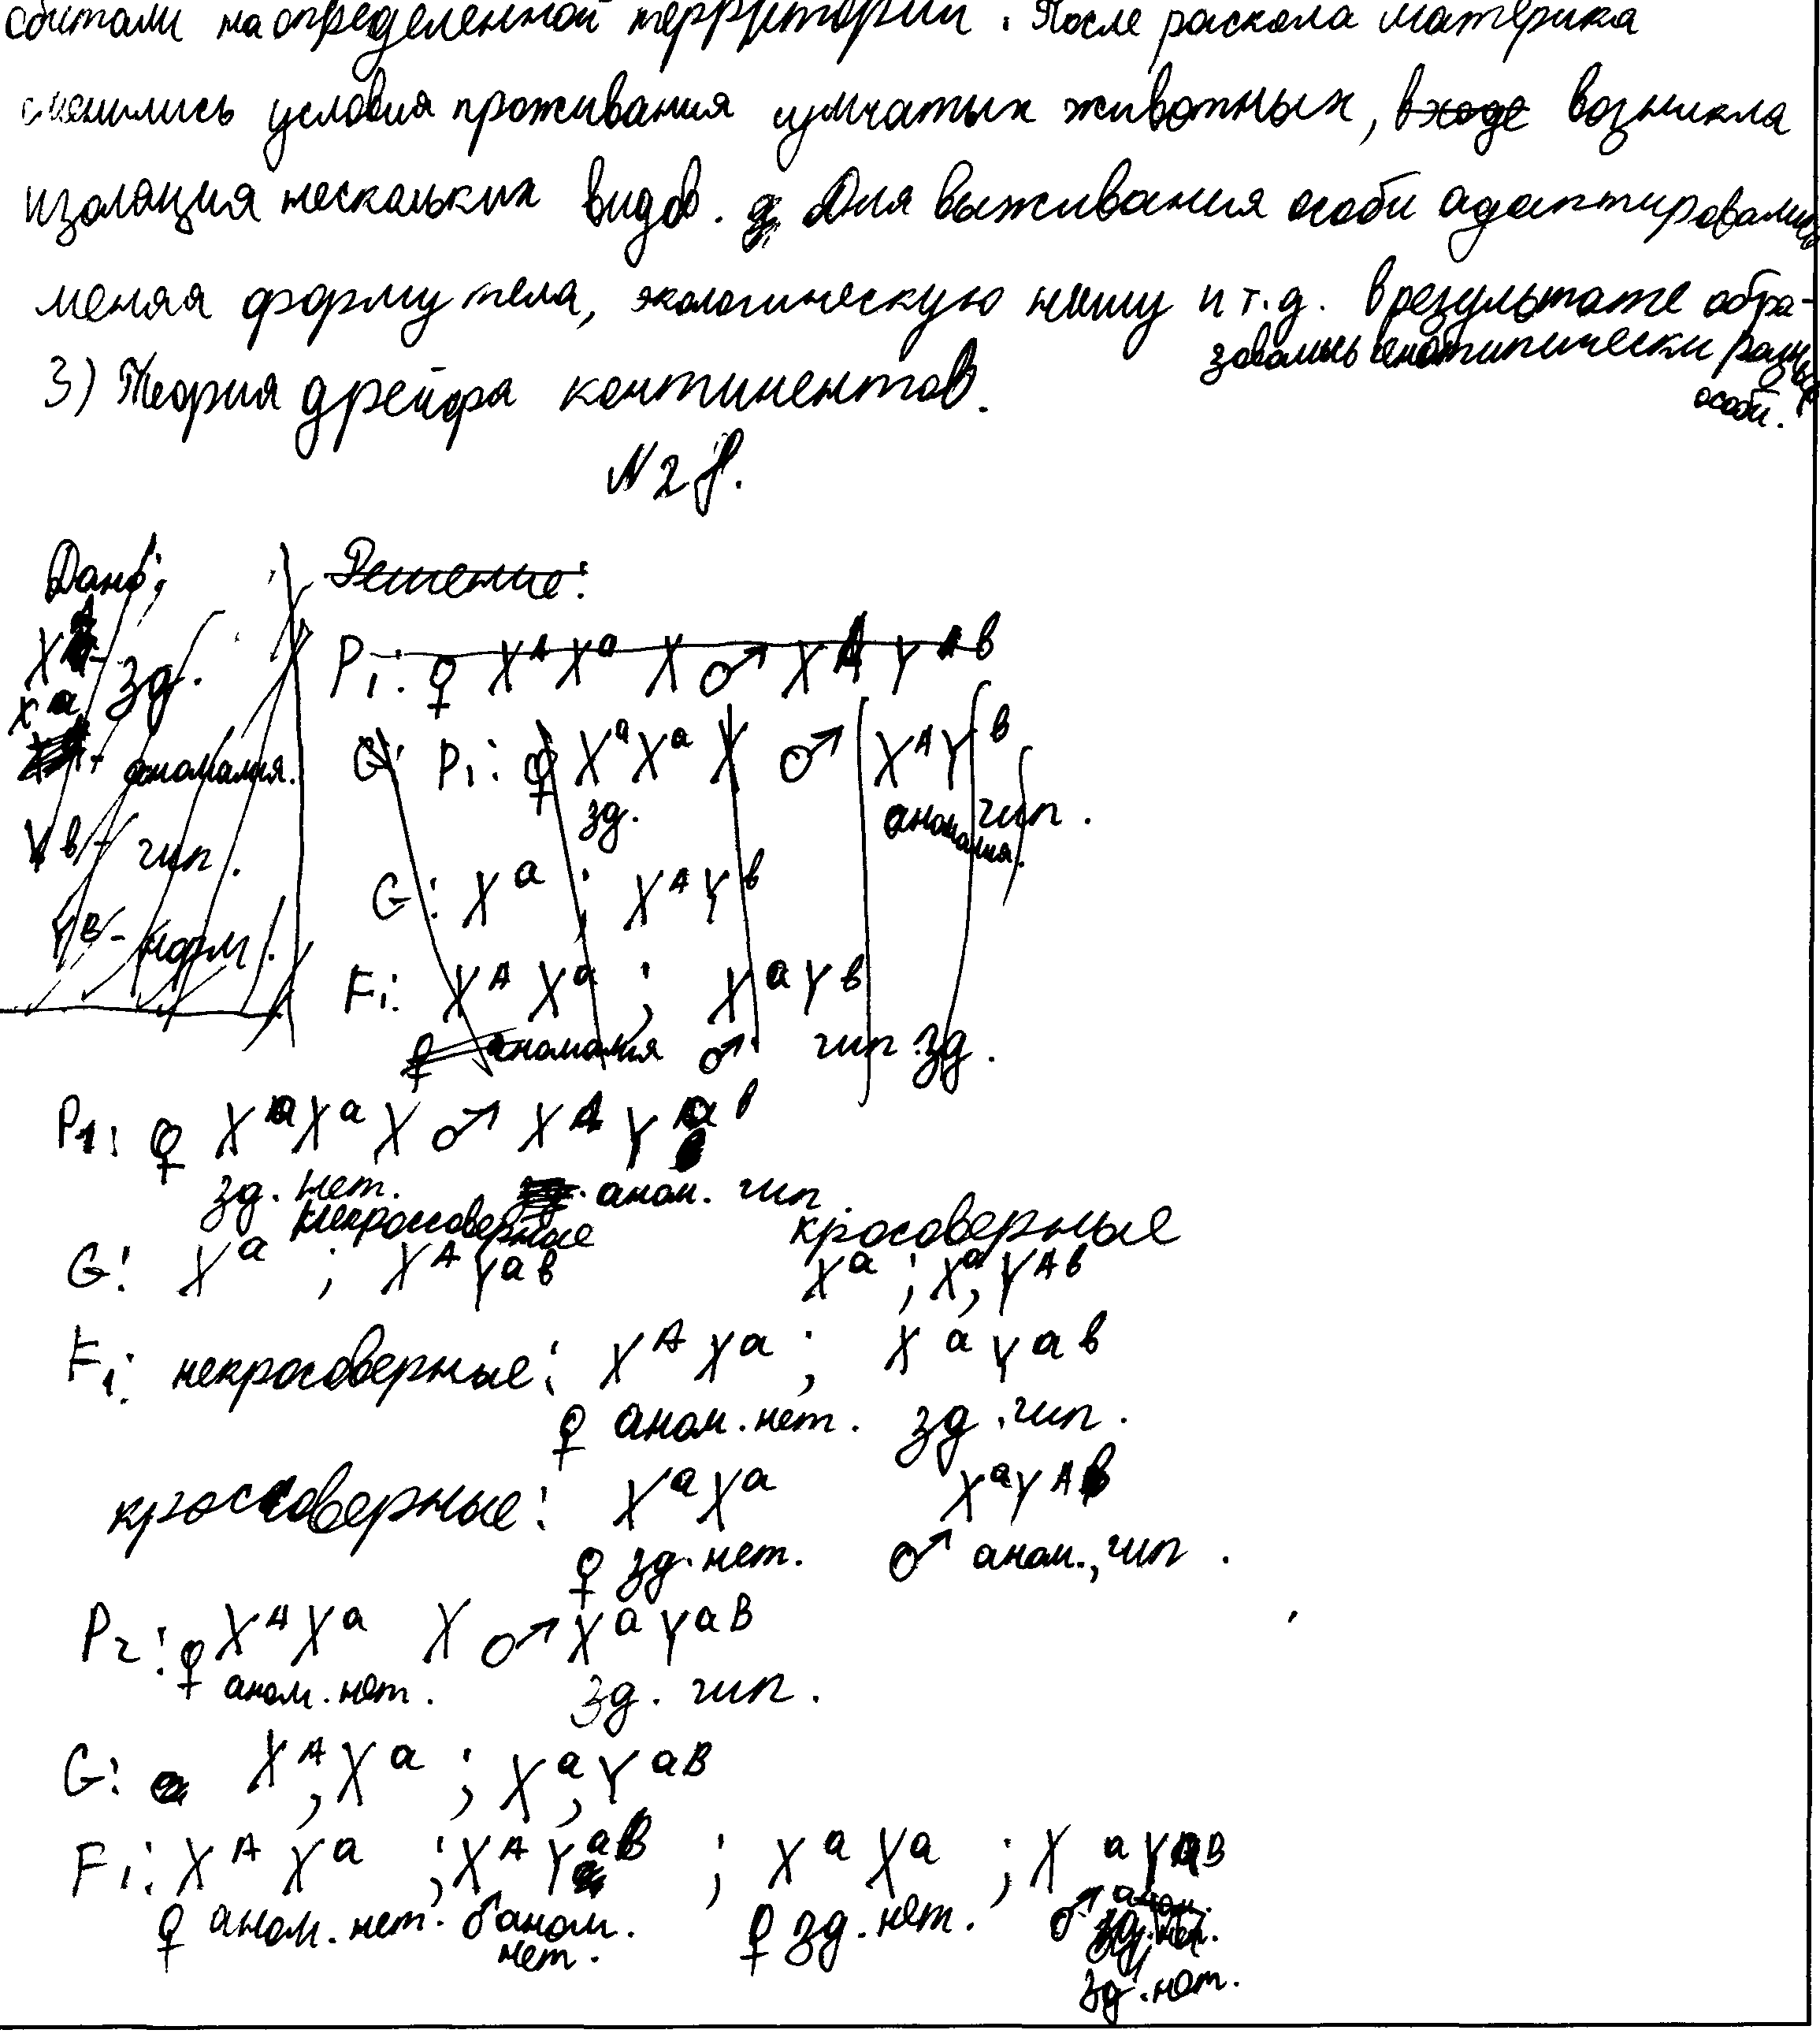 обитали на определенной территории. После раскола материка
сменились условия проживания сумчатых животных, в ходе возникла
изоляция нескольких видов. Для выживания особи адаптировались
меняя форму тела, экологическую нишу и т.д. в результате обра-
зовались генотипически разные
особи.
3) Теория дрейфа континентов.
N28.
Дано: Решение:
X^A - зд.
x^a - аномалия.
Y^b - гип.
Y^B - норм.
P1: ♀ X^A X^a X ♂ X^A Y^Ab
G: P1: ♀ X^a X^a X ♂ X^A Y^b
зд. аномалия. гип.
G: X^a ; X^A Y^b
F1: X^A X^a ; X^a Y^b
♀ аномалия ♂ гип. зд.
P1: ♀ X^a X^a X ♂ X^A Y^ab
зд. нет. зд. аном. гип.
некроссоверные кросоверные
G: X^a ; X^A Y^ab X^a ; X^a, Y^Ab
F1: некросоверные: X^A X^a ; X^a Y^ab
♀ аном. нет. зд. гип.
кроссоверные: X^a X^a X^a Y^Ab
♀ зд. нет. ♂ аном., гип.
P2: ♀ X^A X^a X ♂ X^a Y^aB
аном. нет. зд. гип.
G: X^A, X^a ; X^a, Y^aB
F1: X^A X^a ; X^A Y^aB ; X^a X^a ; X^a Y^aB
♀ аном. нет. ♂ аном. нет. ♀ зд. нет. ♂ аном.
зд. нет.
зд. нет.